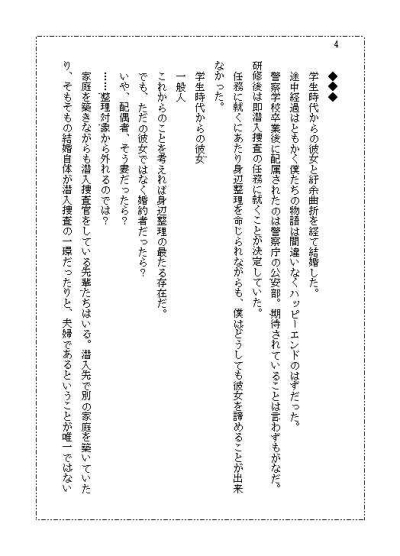 4
◆◆◆
学生時代からの彼女と紆余曲折を経て結婚した。
途中経過はともかく僕たちの物語は間違いなくハッピーエンドのはずだった。
警察学校卒業後に配属されたのは警察庁の公安部。期待されていることは言わずもがなだ。
研修後は即潜入捜査の任務に就くことが決定していた。
任務に就くにあたり身辺整理を命じられながらも、僕はどうしても彼女を諦めることが出来
なかった。
学生時代からの彼女
一般人
これからのことを考えれば身辺整理の最たる存在だ。
でも、ただの彼女ではなく婚約者だったら？
いや、配偶者、そう妻だったら？
……整理対象から外れるのでは？
家庭を築きながらも潜入捜査官をしている先輩たちはいる。潜入先で別の家庭を築いていた
り、そもそもの結婚自体が潜入捜査の一環だったりと、夫婦であるということが唯一ではない